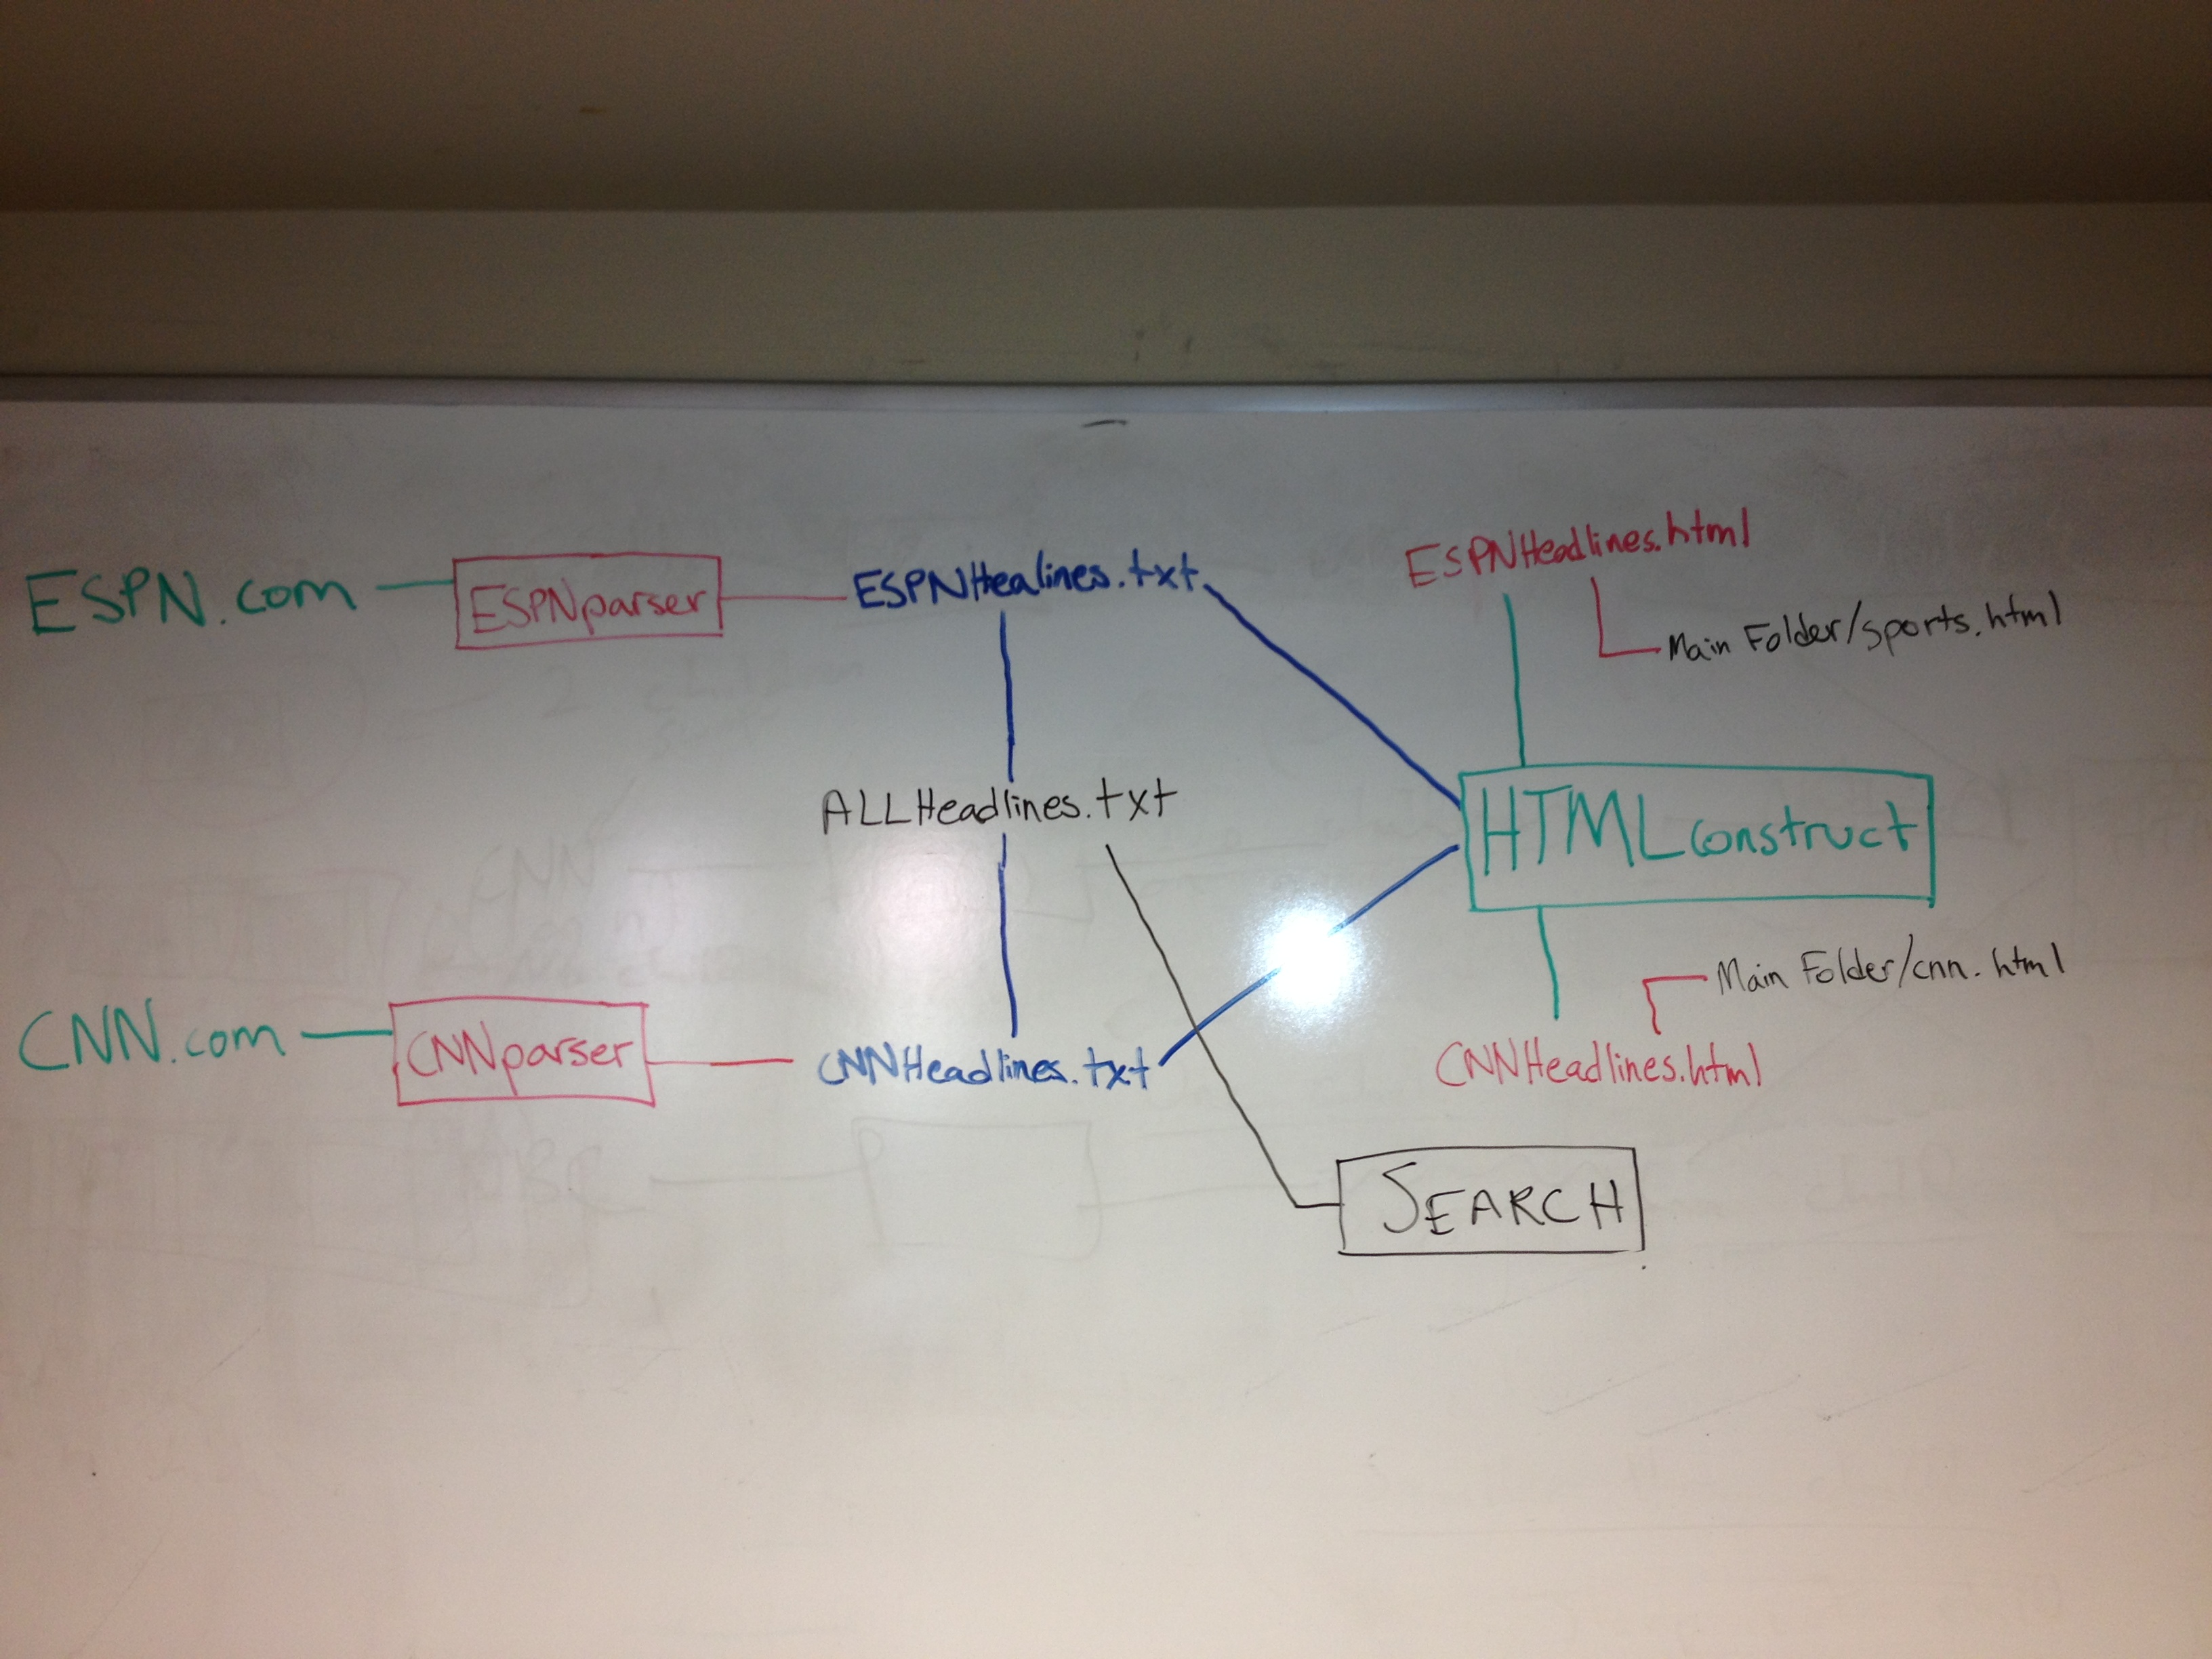 ESPN.com
ESPNparser
ESPNHealines.txt
ESPNHeadlines.html
Main Folder/sports.html
ALLHeadlines.txt
HTMLconstruct
Main Folder/cnn.html
CNN.com
CNNparser
CNNHeadlines.txt
CNNHeadlines.html
SEARCH
CNN